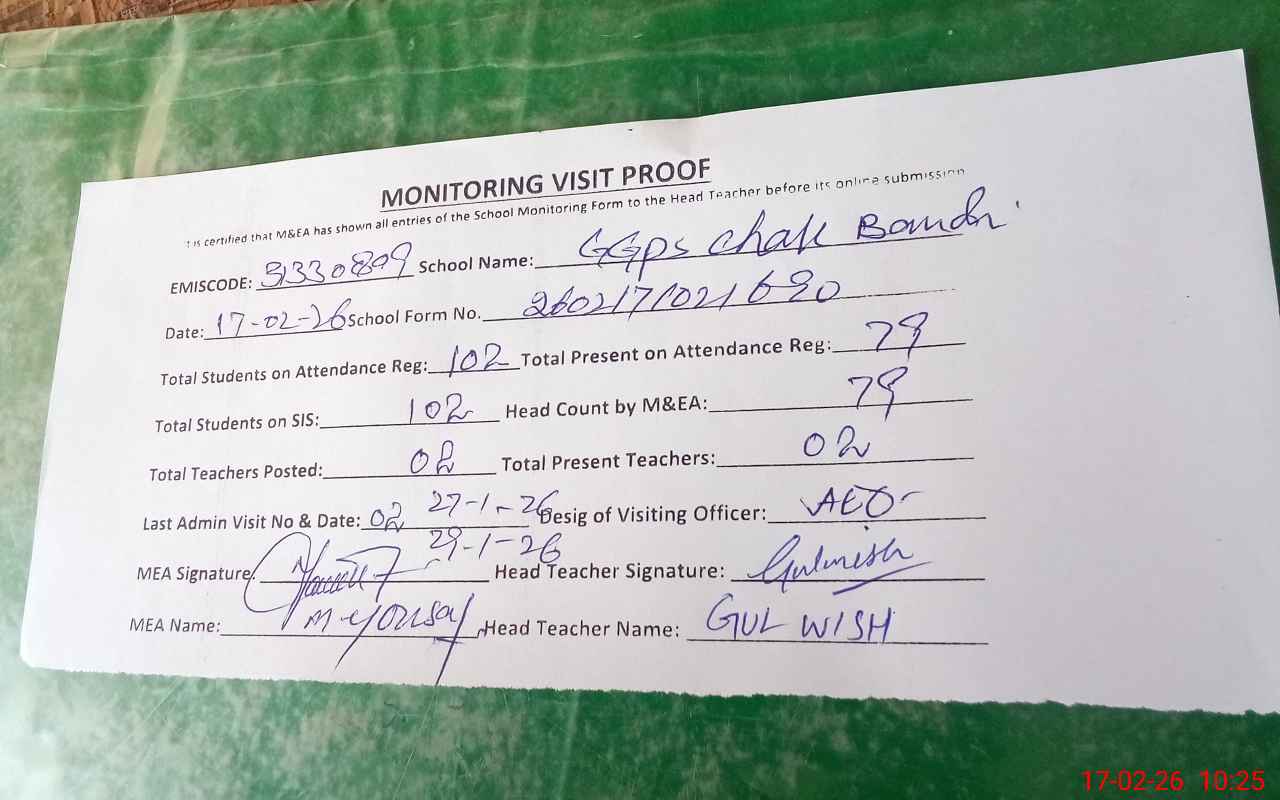 MONITORING VISIT PROOF
It is certified that M&EA has shown all entries of the School Monitoring Form to the Head Teacher before its online submission
EMISCODE: 31330899 School Name: GGPS Chak Bandi
Date: 17-02-26 School Form No. 2602171021690
Total Students on Attendance Reg: 102 Total Present on Attendance Reg: 79
Total Students on SIS: 102 Head Count by M&EA: 79
Total Teachers Posted: 02 Total Present Teachers: 02
Last Admin Visit No & Date: 02 27-1-26 Desig of Visiting Officer: AEO
29-1-26
MEA Signature: Head Teacher Signature: Gulwish
MEA Name: M-Yousaf Head Teacher Name: GUL WISH
17-02-26 10:25